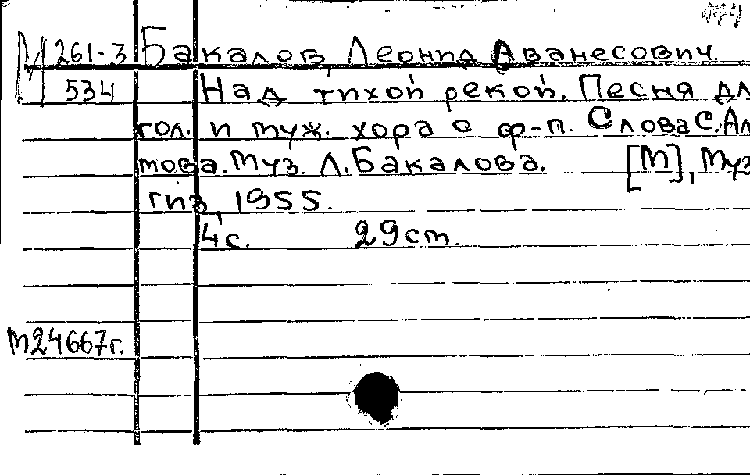 М 261-3 Бакалов, Леонид Аванесович.
534 Над тихой рекой. Песня дл
гол. и муж. хора с ф-п. Слова С. Ал
мова. Муз. Л. Бакалова. [М], Муз
гиз, 1955.
4 с. 29 см.
М24667г.